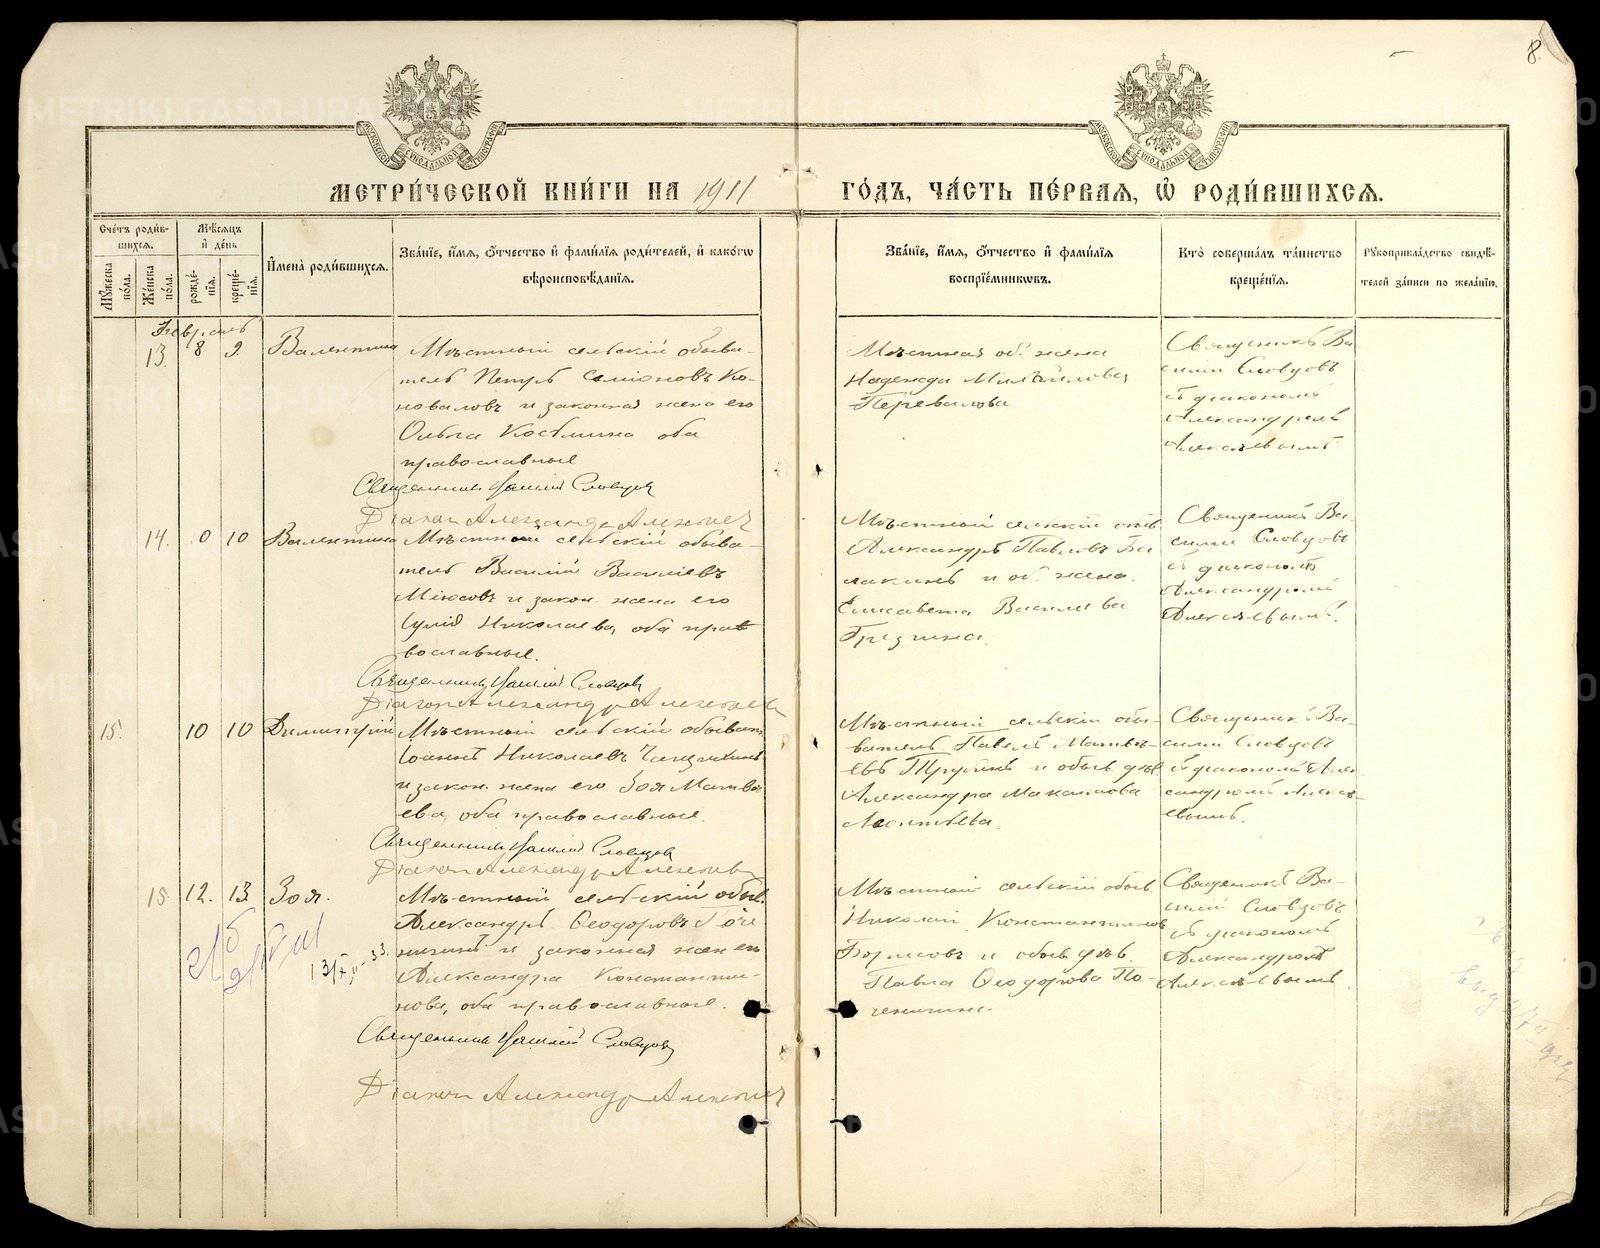 8.
МЕТРИ́ЧЕСКОЙ КНИ́ГИ НА 1911 ГО́ДЪ, ЧА́СТЬ ПЕ́РВАЯ, Ѡ҆ РОДИ́ВШИХСЯ.
Сче́тъ роди́в-
шихся.
Мꙋ́жеска по́ла.
Же́нска по́ла.
Мѣ́сяцъ
и҆ де́нь
рожде́-
нїя.
креще́-
нїя.
И҆мена̀ роди́вшихся.
Зва́нїе, и҆́мя, ѻ҆́тчество и҆ фами́лїя роди́телей, и҆ како́гѡ
вѣроисповѣ́данїя.
Зва́нїе, и҆́мя, ѻ҆́тчество и҆ фами́лїя
воспрїе́мникѡвъ.
Кто̀ соверша́лъ та́инство
креще́нїя.
Рꙋкоприкла́дство свидѣ́-
телей за́писи по жела́нїю.
Февраль
13. 8 9. Валентина
Мѣстный сельскій обыва-
тель Петръ Симіоновъ Ко-
новаловъ и законная жена его
Ольга Косьмина оба
православные
Священникъ Василій Словцовъ
Діаконъ Александръ Алексѣевъ
Мѣстная об. жена
Надежда Михайлова
Перевалова
Священникъ Ва-
силій Словцовъ
съ діакономъ
Александромъ
Алексѣевымъ
14. 10 Валентина
Мѣстный сельскій обыва-
тель Василій Василіевъ
и закон. жена его
Іулія Николаева, оба пра-
вославные.
Священникъ Василій Словцовъ
Діаконъ Александръ Алексѣевъ
Мѣстный сельскій обыв.
Александръ Павловъ Ба-
лакинъ и об. жена
Елисавета Василіева
Грезина.
Священникъ Ва-
силій Словцовъ
съ діакономъ
Александромъ
Алексѣевымъ.
15. 10 10 Димитрій
Мѣстный сельскій обыват.
Іоаннъ Николаевъ
и закон. жена его Зоя Матвѣ-
ева, оба православные.
Священникъ Василій Словцовъ
Діаконъ Александръ Алексѣевъ
Мѣстный сельскій обы-
ватель Павелъ Матвѣ-
евъ и обыв. дѣв.
Александра Максимова
Леонтьева.
Священникъ Ва-
силій Словцовъ
съ діакономъ Алек-
сандромъ Алексѣ-
евымъ.
15 12. 13 Зоя.
Мѣстный сельскій обыв.
Александръ Ѳеодоровъ
и законная жена его
Александра Константи-
нова, оба православные.
Священникъ Василій Словцовъ
Діаконъ Александръ Алексѣевъ
Мѣстный сельскій обыв.
Николай Константиновъ
Борисовъ и обыв. дѣв.
Павла Ѳеодорова
Священникъ Ва-
силій Словцовъ
съ діакономъ
Александромъ
Алексѣевымъ.